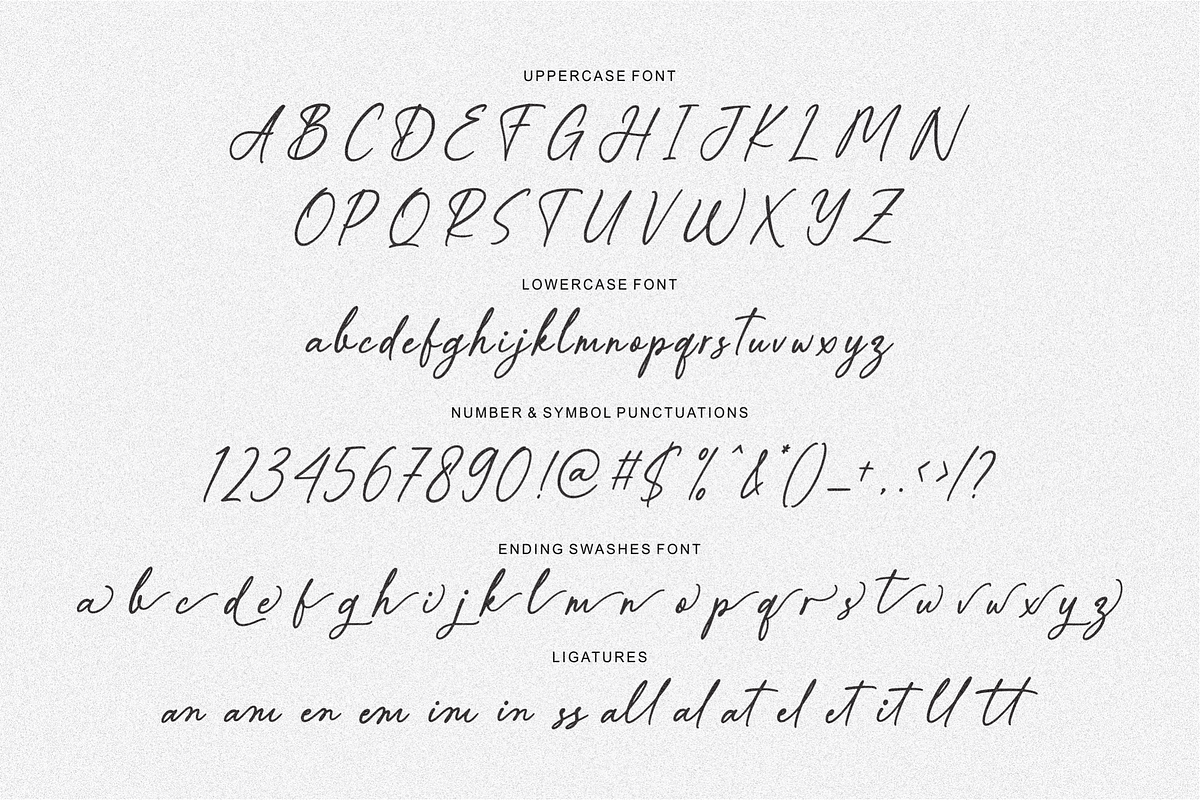 UPPERCASE FONT
A B C D E F G H I J K L M N
O P Q R S T U V W X Y Z
LOWERCASE FONT
abcdefghijklmnopqrstuvwxyz
NUMBER & SYMBOL PUNCTUATIONS
1234567890!@#$%^&*()_+,.<>/?
ENDING SWASHES FONT
a b c d e f g h i j k l m n o p q r s t u v w x y z
LIGATURES
an am en em im in ss all al at el et it ll tt